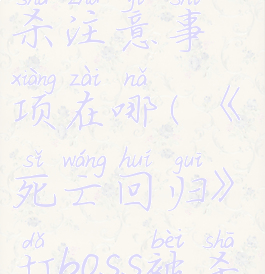 shā zhù yì shì
杀注意事
xiàng zài nǎ
项在哪(《
sǐ wáng huí guī
死亡回归》
dǎ bèi shā
打boss被杀